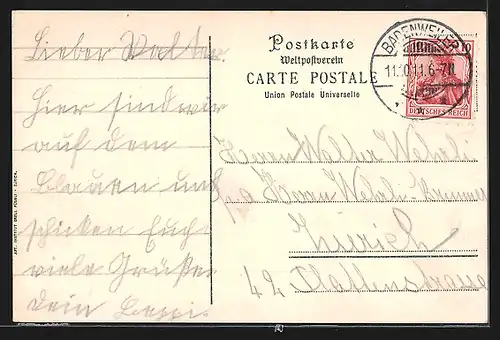 Lieber Walter.
Hier sind wir
auf dem
Blauen und
schicken Euch
viele Grüße
Dein Beppi.
ART. INSTITUT ORELL FÜSSLI - ZÜRICH.
Postkarte
Weltpostverein
CARTE POSTALE
Union Postale Universelle
BADENWEILER
11.10.11.6-7N.
10
DEUTSCHES REICH
Herrn Walter
p.a Herrn
Zürich
42 Plattenstrasse